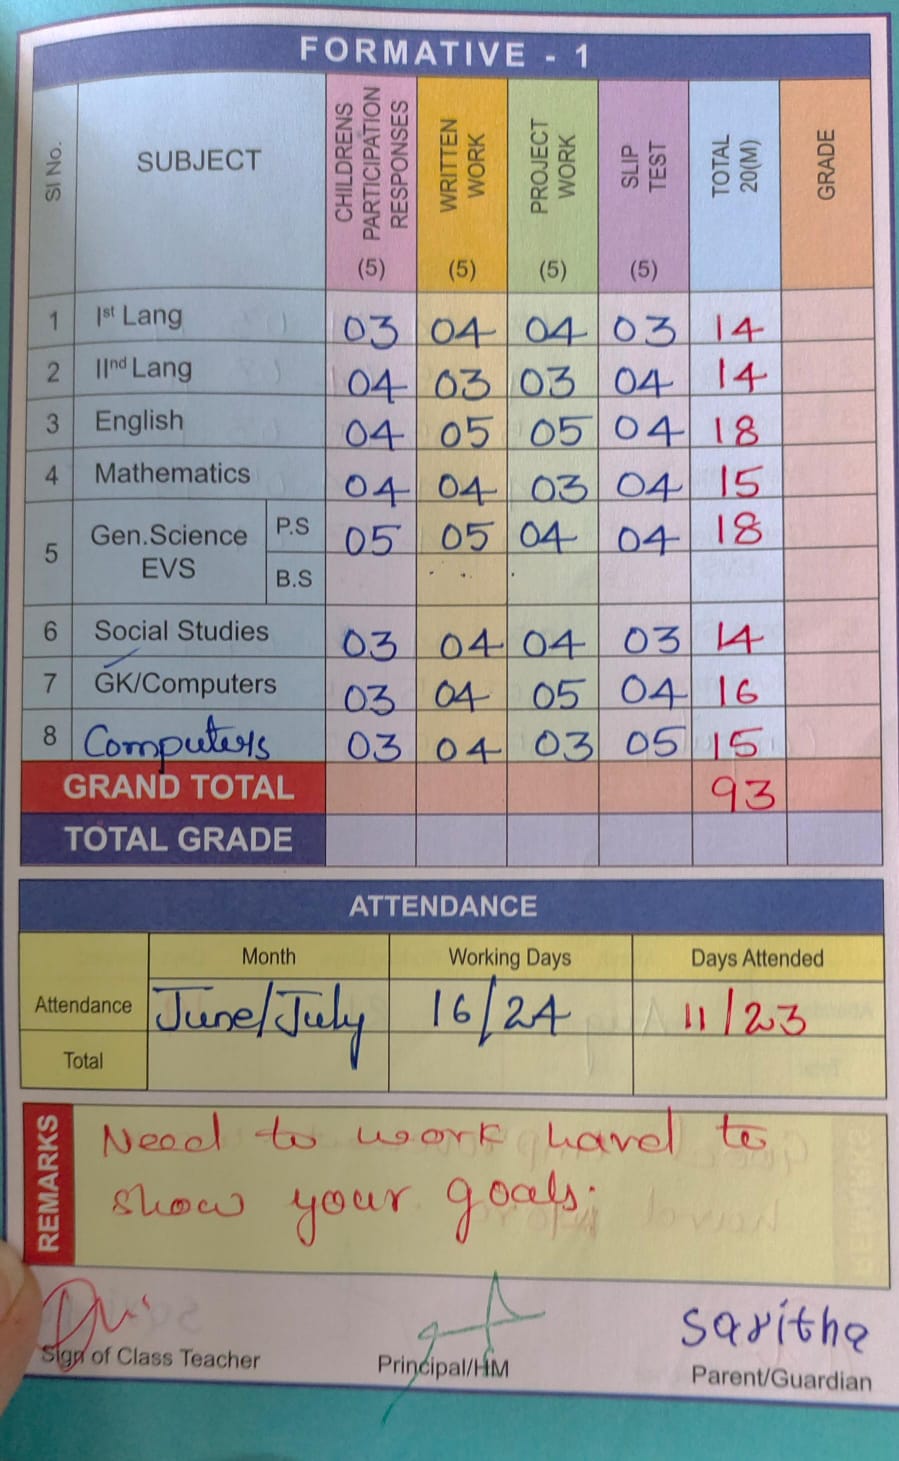 FORMATIVE - 1
SI No. SUBJECT CHILDRENS PARTICIPATION RESPONSES (5) WRITTEN WORK (5) PROJECT WORK (5) SLIP TEST (5) TOTAL 20(M) GRADE
1 Ist Lang 03 04 04 03 14
2 IInd Lang 04 03 03 04 14
3 English 04 05 05 04 18
4 Mathematics 04 04 03 04 15
5 Gen.Science EVS P.S 05 05 04 04 18
B.S
6 Social Studies 03 04 04 03 14
7 GK/Computers 03 04 05 04 16
8 Computers 03 04 03 05 15
GRAND TOTAL 93
TOTAL GRADE
ATTENDANCE
Month Working Days Days Attended
Attendance June/July 16/24 11/23
Total
REMARKS
Need to work hard to
show your goals.
Saritha
Sign of Class Teacher Principal/HM Parent/Guardian